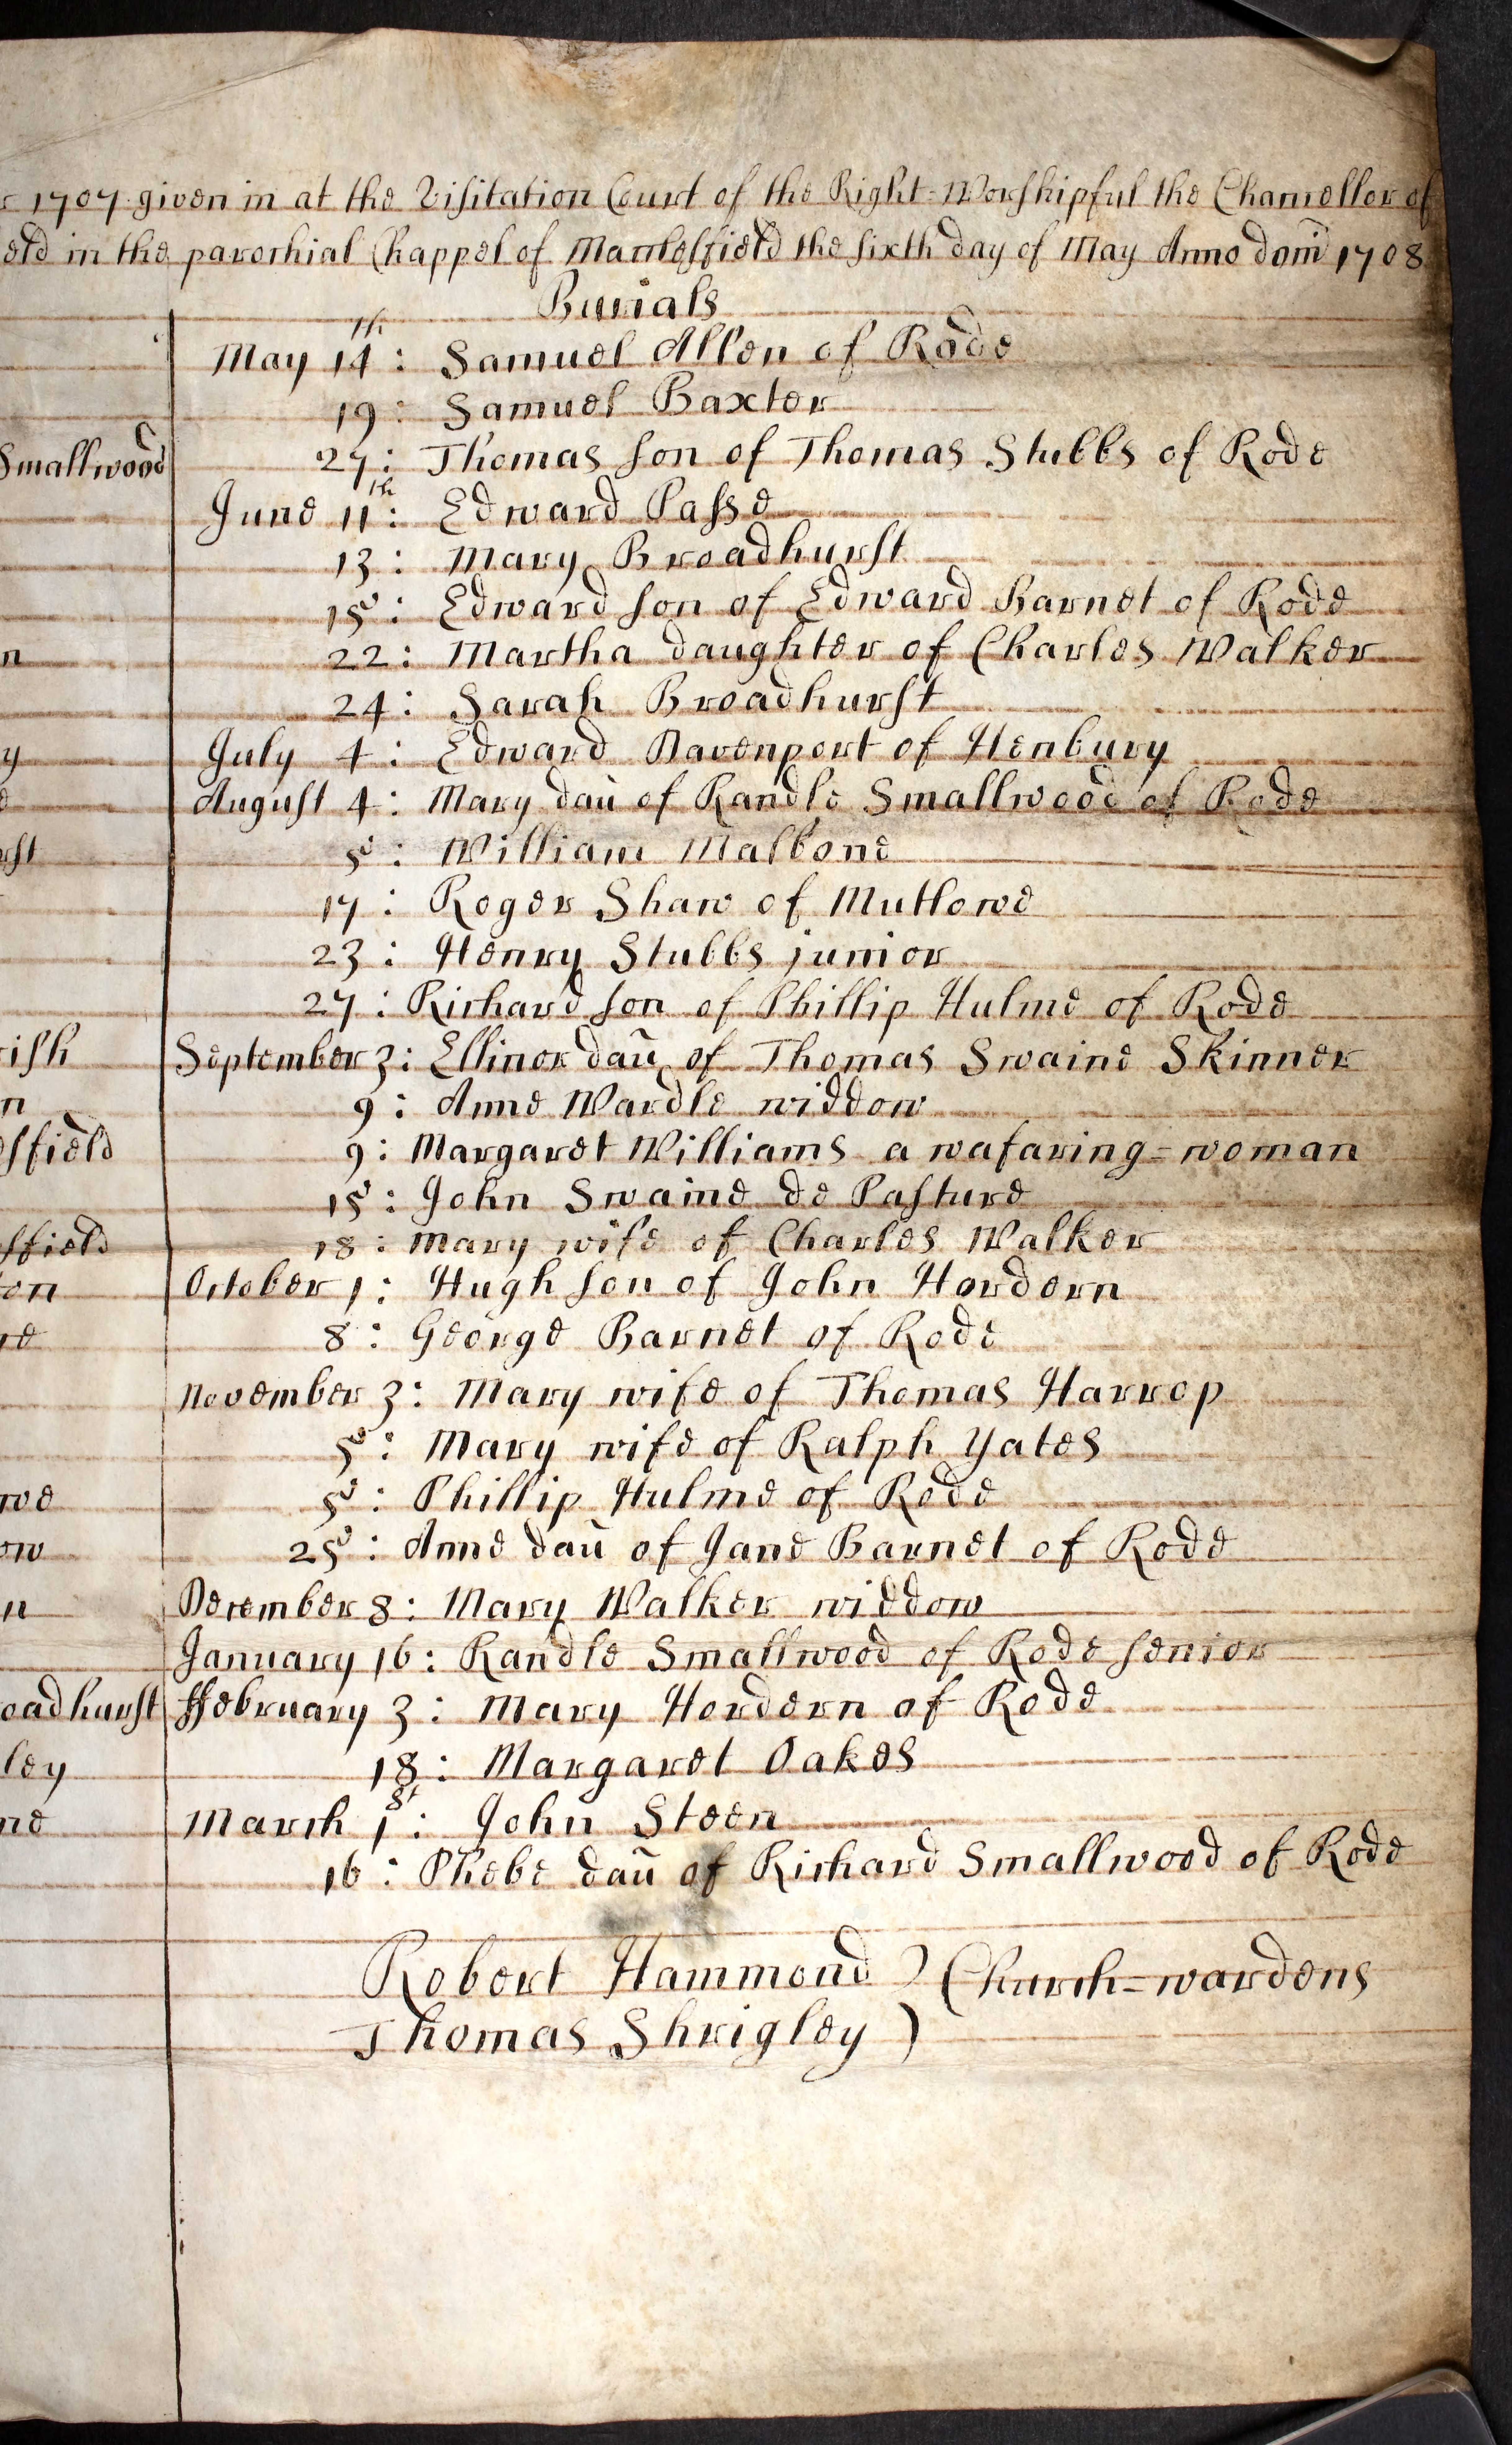 1707 given in at the Visitation Court of the Right-Worshipful the Chancellor of
eld in the parochial Chappel of Macclesfield the sixth day of May Anno dom̄ 1708
Burials
May 14th : Samuel Allen of Rode
19 : Samuel Baxter
Smallwood 27 : Thomas son of Thomas Stubbs of Rode
June 11th : Edward Passe
13 : Mary Broadhurst
15 : Edward son of Edward Barnet of Rode
n 22 : Martha daughter of Charles Walker
24 : Sarah Broadhurst
y July 4 : Edward Davenport of Henbury
August 4 : Mary daū of Randle Smallwood of Rode
rst 5 : William Malbone
17 : Roger Shaw of Mutlowe
23 : Henry Stubbs junior
27 : Richard son of Phillip Hulme of Rode
rish September 3 : Ellinor daū of Thomas Swaine Skinner
n 9 : Anne Wardle widdow
esfield 9 : Margaret Williams a wafaring=woman
15 : John Swaine de Pasture
sfield 18 : Mary wife of Charles Walker
on October 1 : Hugh son of John Hordern
re 8 : George Barnet of Rode
November 3 : Mary wife of Thomas Harrop
5 : Mary wife of Ralph Yates
we 5 : Phillip Hulme of Rode
ow 25 : Anne daū of Jane Barnet of Rode
n December 8 : Mary Walker widdow
January 16 : Randle Smallwood of Rode senior
oadhurst ffebruary 3 : Mary Hordern of Rode
ley 18 : Margaret Oakes
ne March 1st : John Steen
16 : Phebe daū of Richard Smallwood of Rode
Robert Hammond ) Church=wardens
Thomas Shrigley )